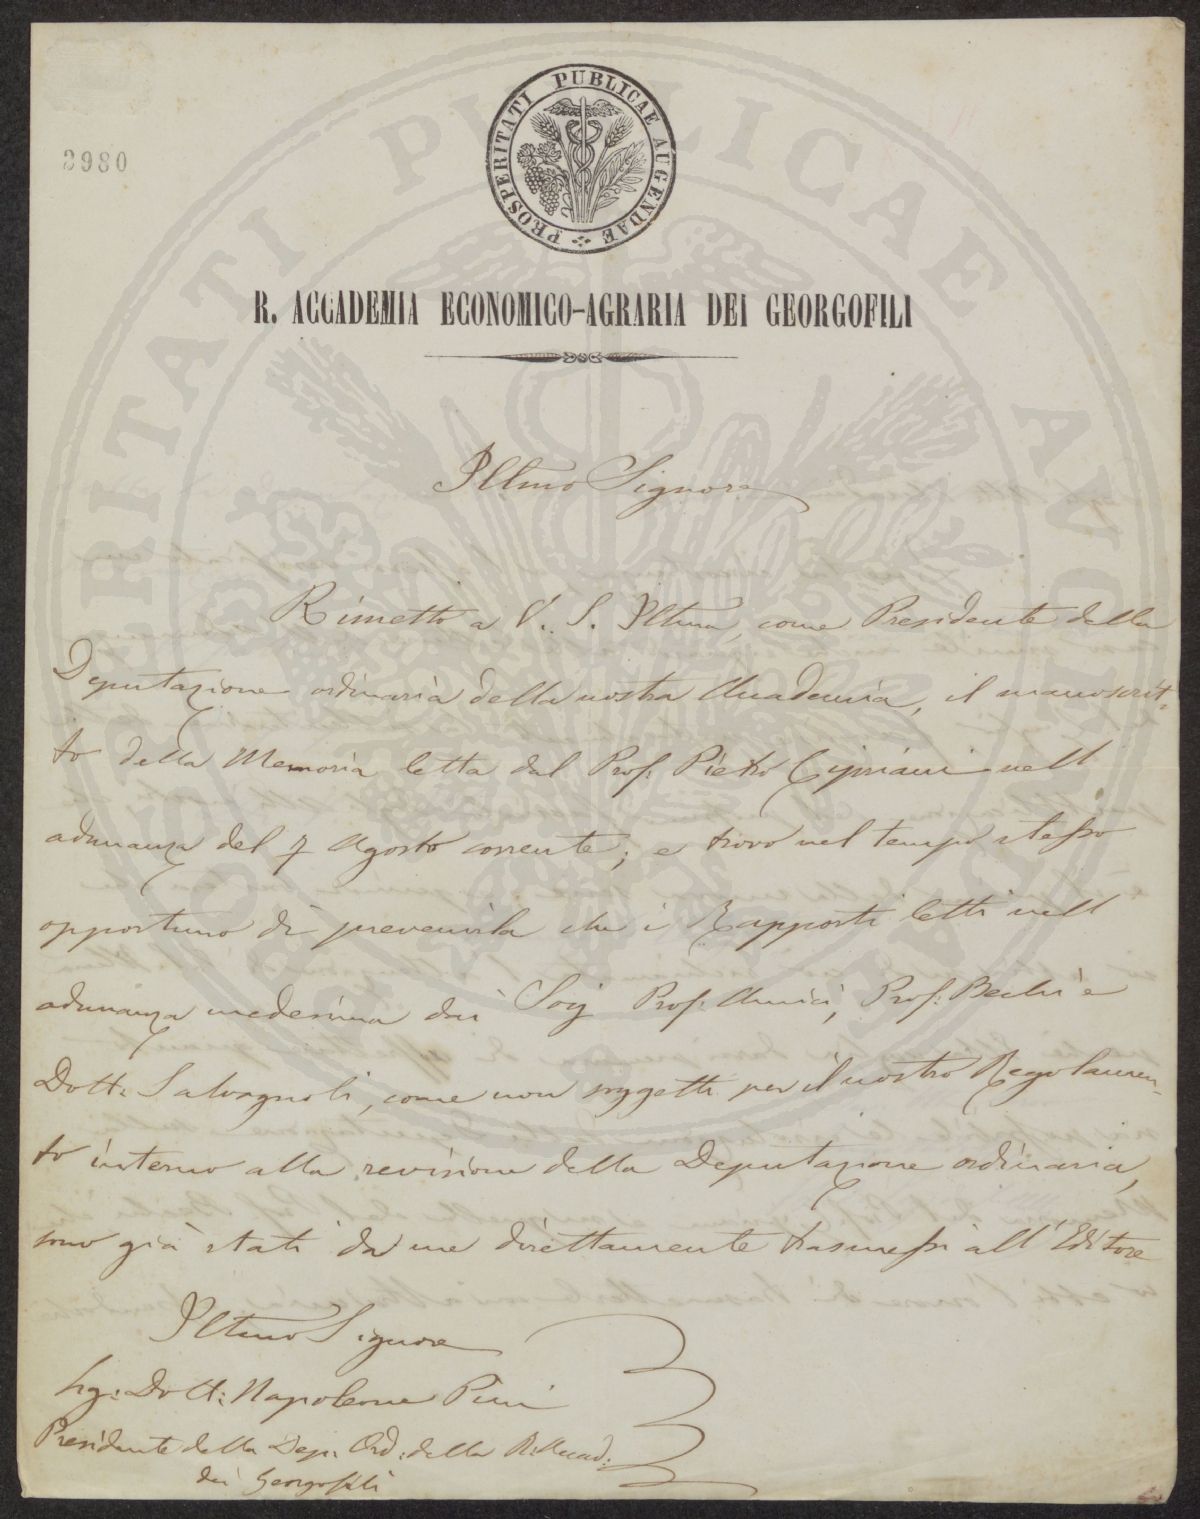 2980
PROSPERITATI PUBLICAE AUGENDAE
R. ACCADEMIA ECONOMICO-AGRARIA DEI GEORGOFILI
Illmo Signore
Rimetto a V. S. Illma, come Presidente della
Deputazione ordinaria della nostra Accademia, il manoscrit-
to della Memoria letta dal Prof. Pietro Cipriani nell
adunanza del 7 Agosto corrente; e trovo nel tempo stesso
opportuno di prevenirla che i Rapporti letti nell
adunanza medesima dai Sigg Prof. Amici, Prof. Bechi e
Dott. Salvagnoli, come non soggetti per il nostro Regolamen-
to interno alla revisione della Deputazione ordinaria,
sono già stati da me direttamente trasmessi all'Editore
Illmo Signore
Sig: Dott: Napoleone Pini
Presidente della Dep: Ord: della R: Accad:
dei Georgofili